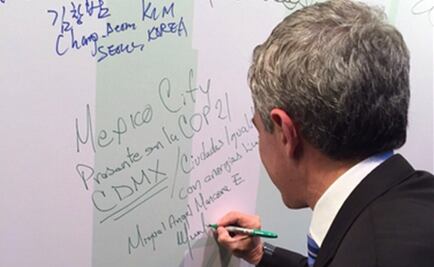 김창범
Chang-Beom KIM
SEOUL, KOREA
Mexico City
Presente en la COP21
CDMX / Ciudades
con energías
Miguel Angel Mancera E